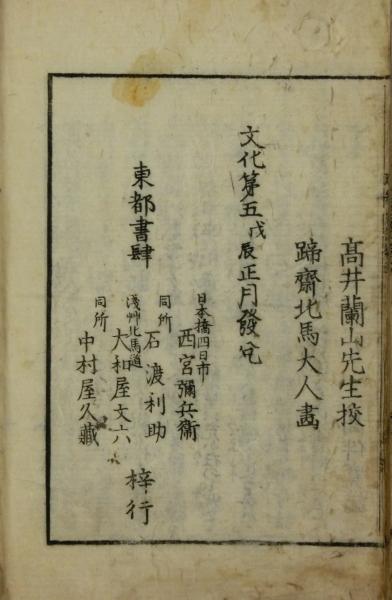 髙井蘭山先生挍
蹄齋北馬大人畵
文化第五戊辰正月發兌
東都書肆
日本橋四日市
西宮彌兵衞
同所
石渡利助
淺艸北馬道
大和屋文六
同所
中村屋久藏
梓行